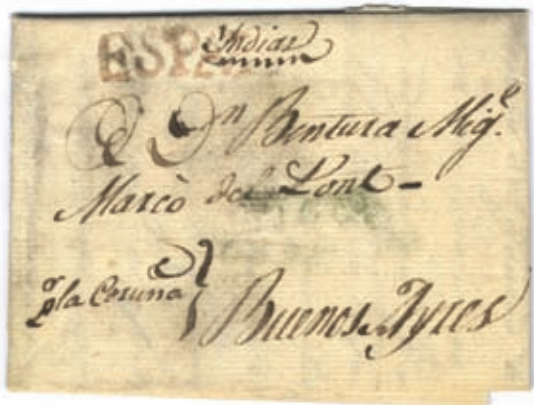 ESPA Indias
A Dn Bentura Mige.
Marcò del Pont-
pr la Coruña
Buenos Ayres